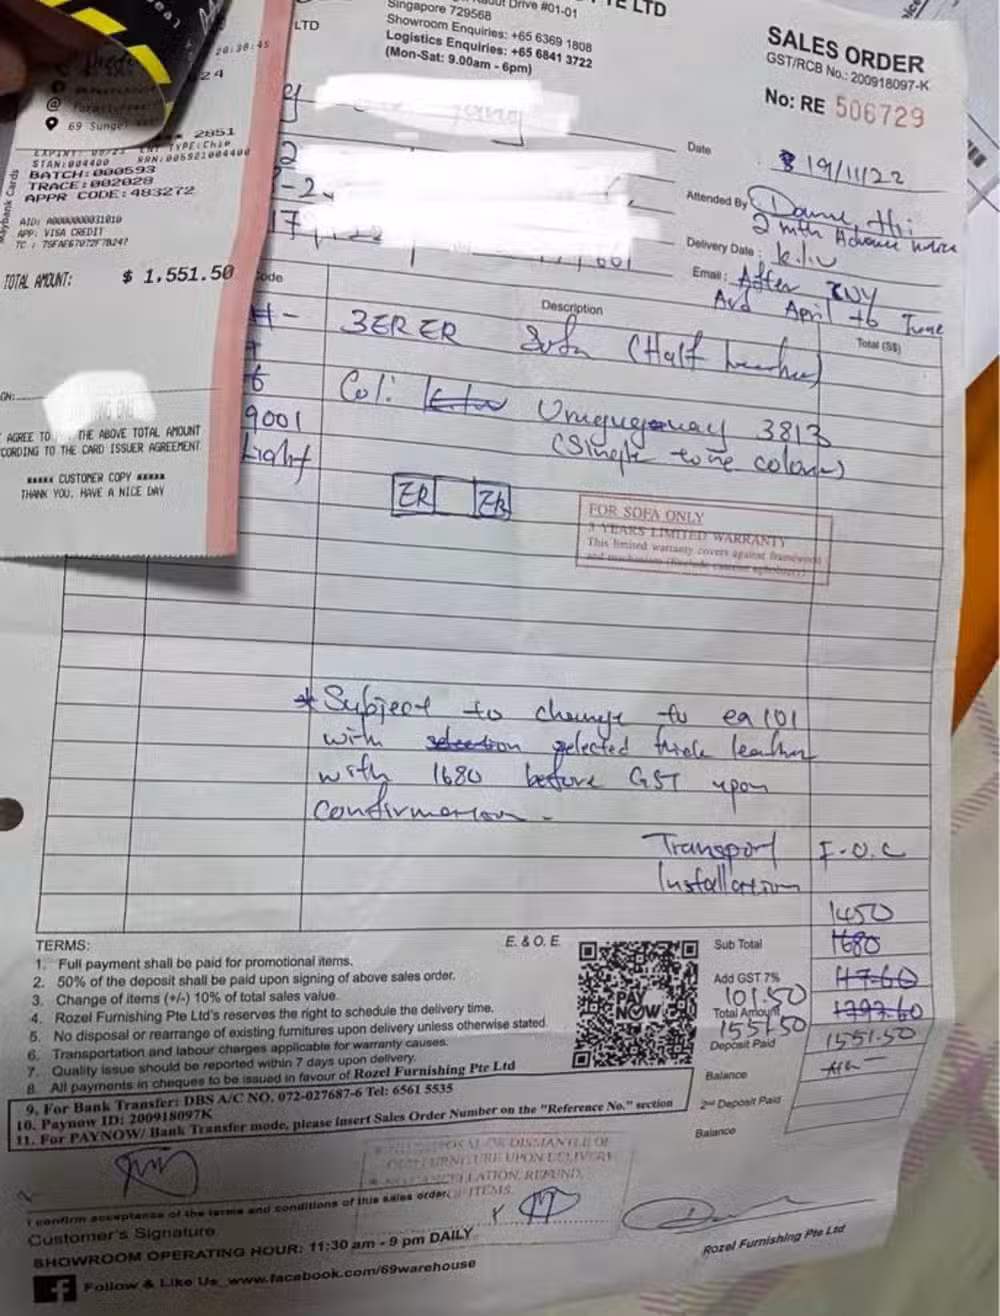 LTD
Drive #01-01
TE LTD
Singapore 729568
Showroom Enquiries: +65 6369 1808
Logistics Enquiries: +65 6841 3722
(Mon-Sat: 9.00am - 6pm)
SALES ORDER
GST/RCB No.: 200918097-K
No: RE 506729
Date
19/11/22
Attended By
2 mth Advance
Delivery Date:
Email: After
Avd April to June
20:30:45
24
@
69 Sunge
2851
TYPE:Chip
STAN:004400 RRN:005921004400
BATCH:000593
TRACE:002028
APPR CODE:483272
Maybank Cards
AID: A0000000031010
APP: VISA CREDIT
TC : 75FAE67072F7B247
TOTAL AMOUNT: $ 1,551.50
AGREE TO THE ABOVE TOTAL AMOUNT
CORDING TO THE CARD ISSUER AGREEMENT
***** CUSTOMER COPY *****
THANK YOU. HAVE A NICE DAY
ode
Description
Total (S$)
3ER ER Sofa (Half leather)
Col: Uniquegray 3813
9001
(Single tone colour)
Light
ER ER
FOR SOFA ONLY
3 YEARS LIMITED WARRANTY
This limited warranty covers against framework
* Subject to change to ea 101
with selection selected thick leather
with 1680 before GST upon
confirmation -
Transport F.O.C
Installation
1450
E. & O. E.
Sub Total 1680
Add GST 7% 117.60
101.50
Total Amount 1797.60
1551.50
Deposit Paid 1551.50
Balance
2nd Deposit Paid
Balance
PAY NOW
TERMS:
1. Full payment shall be paid for promotional items.
2. 50% of the deposit shall be paid upon signing of above sales order.
3. Change of items (+/-) 10% of total sales value.
4. Rozel Furnishing Pte Ltd's reserves the right to schedule the delivery time.
5. No disposal or rearrange of existing furnitures upon delivery unless otherwise stated
6. Transportation and labour charges applicable for warranty causes.
7. Quality issue should be reported within 7 days upon delivery.
8. All payments in cheques to be issued in favour of Rozel Furnishing Pte Ltd
9. For Bank Transfer: DBS A/C NO. 072-027687-6 Tel: 6561 5535
10. Paynow ID: 200918097K
11. For PAYNOW/ Bank Transfer mode, please insert Sales Order Number on the "Reference No." section
DISMANTLE OF
FURNITURE UPON DELIVERY
CANCELLATION, REFUND,
ITEMS.
I confirm acceptance of the terms and conditions of this sales order.
Customer's Signature
Rozel Furnishing Pte Ltd
SHOWROOM OPERATING HOUR: 11:30 am - 9 pm DAILY
Follow & Like Us www.facebook.com/69warehouse